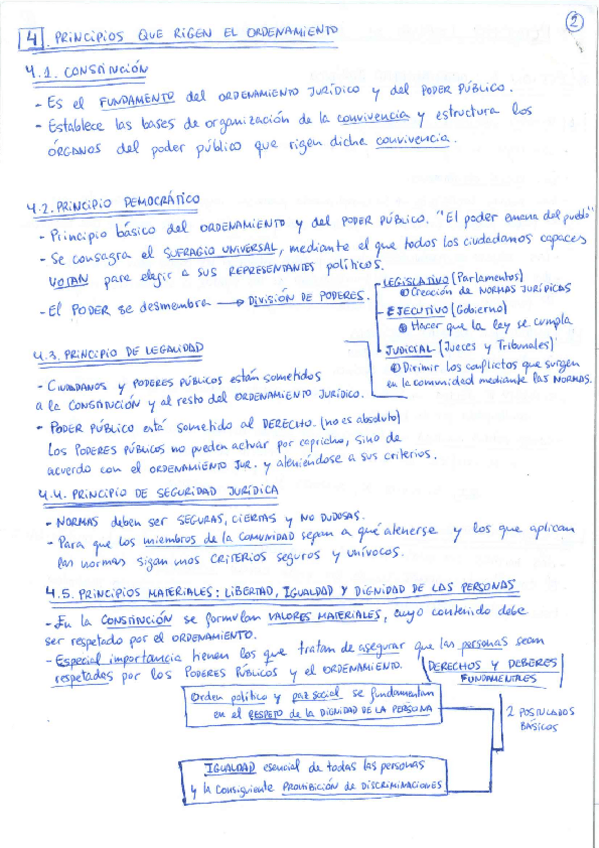 2
4. PRINCIPIOS QUE RIGEN EL ORDENAMIENTO
4.1. CONSTITUCIÓN
- Es el FUNDAMENTO del ORDENAMIENTO JURÍDICO y del PODER PÚBLICO.
- Establece las bases de organización de la convivencia y estructura los
ÓRGANOS del poder público que rigen dicha convivencia.
4.2. PRINCIPIO DEMOCRÁTICO
- Principio básico del ORDENAMIENTO y del PODER PÚBLICO. "El poder emana del pueblo"
- Se consagra el SUFRAGIO UNIVERSAL, mediante el que todos los ciudadanos capaces
VOTAN para elegir a sus REPRESENTANTES políticos.
- El PODER se desmembra → DIVISIÓN DE PODERES.
- LEGISLATIVO (Parlamentos)
Creación de NORMAS JURÍDICAS
- EJECUTIVO (Gobierno)
Hacer que la ley se cumpla
- JUDICIAL (Jueces y Tribunales)
Dirimir los conflictos que surgen
en la comunidad mediante las NORMAS.
4.3. PRINCIPIO DE LEGALIDAD
- CIUDADANOS y PODERES PÚBLICOS están sometidos
a la CONSTITUCIÓN y al resto del ORDENAMIENTO JURÍDICO.
- PODER PÚBLICO está sometido al DERECHO. (no es absoluto)
Los PODERES PÚBLICOS no pueden actuar por capricho, sino de
acuerdo con el ORDENAMIENTO JUR. y ateniéndose a sus criterios.
4.4. PRINCIPIO DE SEGURIDAD JURÍDICA
- NORMAS deben ser SEGURAS, CIERTAS y NO DUDOSAS.
- Para que los miembros de la COMUNIDAD sepan a qué atenerse y los que aplican
las normas sigan unos CRITERIOS seguros y unívocos.
4.5. PRINCIPIOS MATERIALES: LIBERTAD, IGUALDAD Y DIGNIDAD DE LAS PERSONAS
- En la CONSTITUCIÓN se formulan VALORES MATERIALES, cuyo contenido debe
ser respetado por el ORDENAMIENTO.
- Especial importancia tienen los que tratan de asegurar que las personas sean
respetadas por los PODERES PÚBLICOS y el ORDENAMIENTO.
(DERECHOS Y DEBERES
FUNDAMENTALES
Orden político y paz social se fundamentan
en el RESPETO de la DIGNIDAD DE LA PERSONA
2 POSTULADOS
BÁSICOS
IGUALDAD esencial de todas las personas
y la consiguiente PROHIBICIÓN DE DISCRIMINACIONES